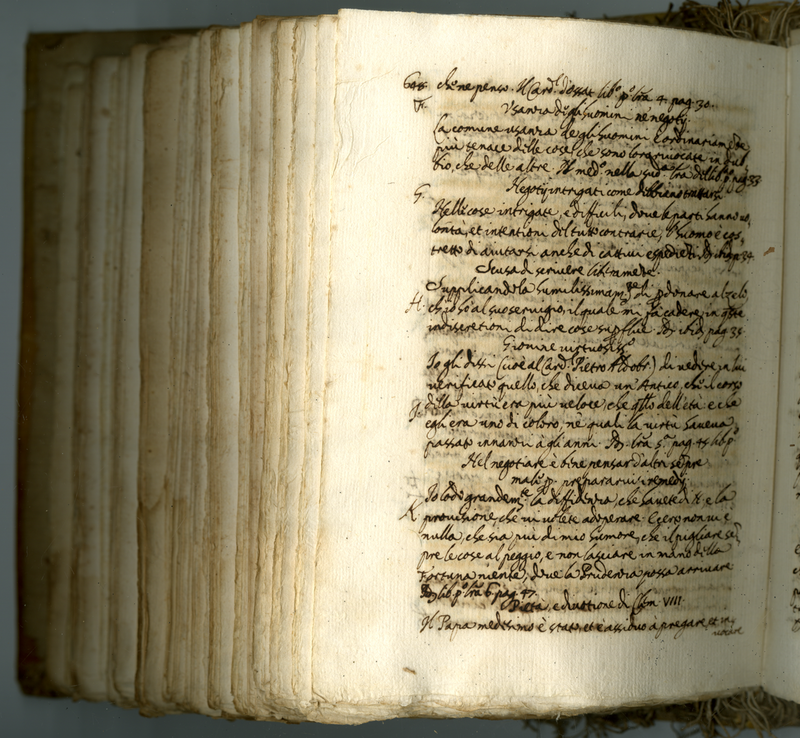 648. che ne penso. Il Card.l d'ossat lib.o p.o l'ra 4. pag. 30.
F. Usanza degli huomini ne' negotij.
La comune usanza degli huomini è ordinariam.te
più tenace delle cose, che sono loro rivocate in dub
bio, che delle altre. Il med.o nella sud.a l'ra del lib.o p.o pag 33
G. Negotij intrigati come debbiano trattarsi
Nelle cose intrigate, e difficili, dove le parti hanno vo,
lontà, et intentioni del tutto contrarie, l'huomo è cos,
tretto di aiutarsi anche di cattivi espedienti. Id. ibid. p. 34.
Scusa di scrivere liberamente.
Supplicandola humilissimam.te di p'donare al zelo,
H. ch'io hò al suo servigio, il quale mi fà cadere in q'ste
indiscretioni di dire cose sup'flue. Id. ibid. pag. 35
Giovine virtuosiss.o
Io gli dissi (cioè al Card.l Pietro Aldobr.) di vedere in lui
verificato quello, che diceva un Antico, che il corso
J. della virtù era più veloce, che q'llo dell'età: e che
egli era uno di coloro, ne' quali la virtù haveva
passato innanzi à gli anni. Id. l'ra 5.a pag. 45 lib. p.o
Nel negotiare è bene pensar d'altri sempre
male p. prepararvi i remedij.
K Io lodo grandem.te la diffidenza, che havete di N. e la
provisione, che vi volete adoperare. E certo non vi è
nulla, che sia più di mio humore, che il pigliare se
pre le cose al peggio, e non lasciare in mano della
Fortuna niente, dove la Prudenza possa arrivare
Id. lib. p.o l'ra 6. pag. 47.
Pietà, e divottione di Clem. VIII.
Il Papa medesimo è stato, et è assiduo a pregare, et in
vocare